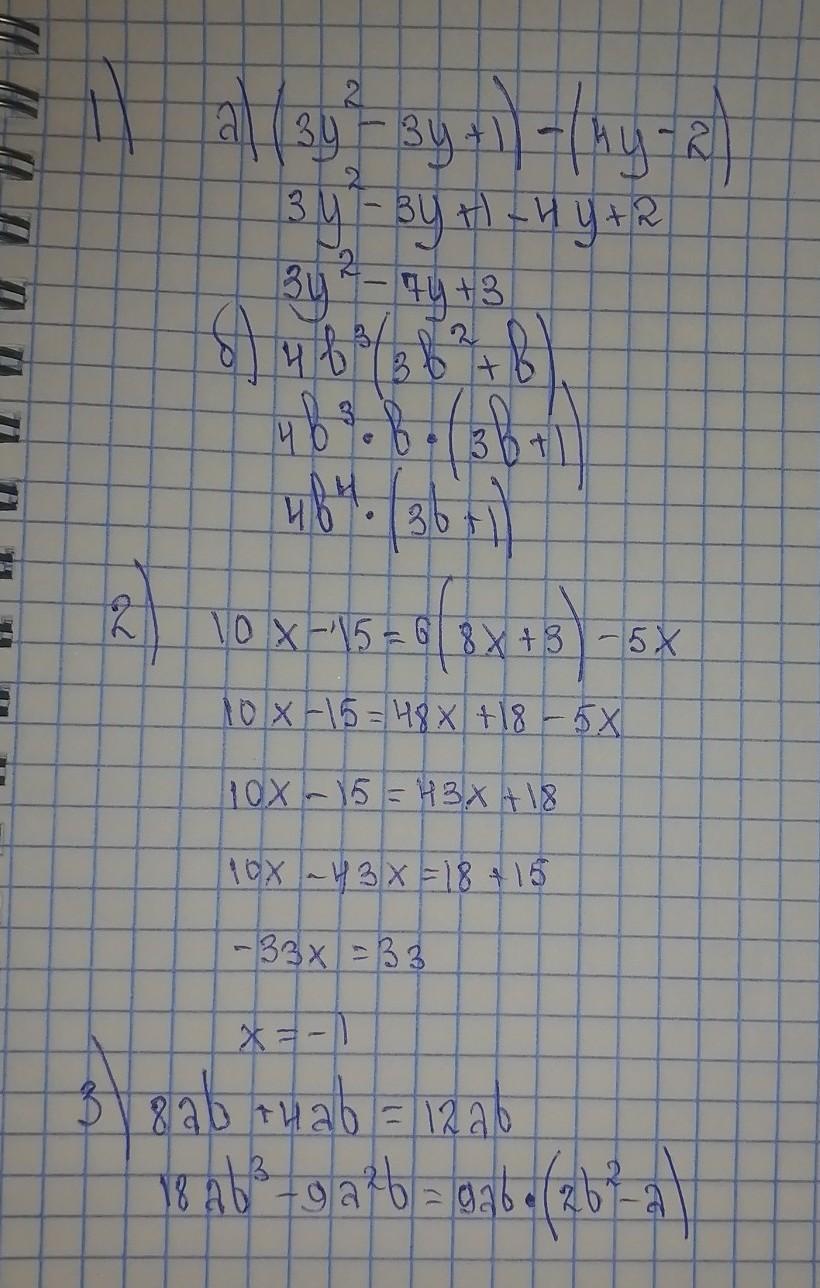 1) a) (3y² - 3y + 1) - (4y - 2)
3y² - 3y + 1 - 4y + 2
3y² - 7y + 3
б) 4b³(3b² + b)
4b³ · b · (3b + 1)
4b⁴ · (3b + 1)
2) 10x - 15 = 6(8x + 3) - 5x
10x - 15 = 48x + 18 - 5x
10x - 15 = 43x + 18
10x - 43x = 18 + 15
-33x = 33
x = -1
3) 8ab + 4ab = 12ab
18ab³ - 9a²b = 9ab · (2b² - a)